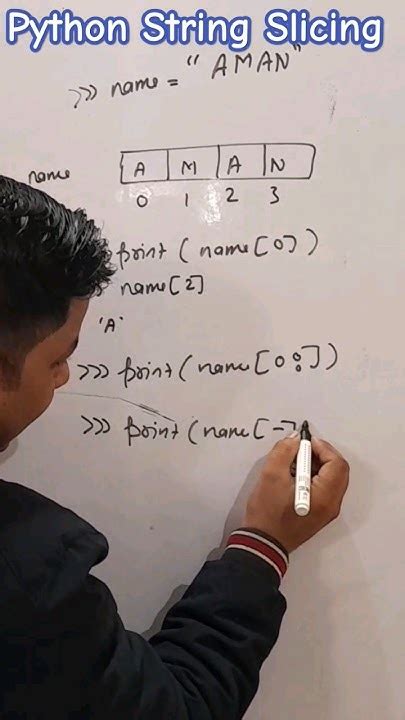 Python String Slicing
>>> name = "AMAN"
name A M A N
0 1 2 3
print ( name [0] )
name [2]
'A'
>>> print ( name [0:] )
>>> print ( name [-